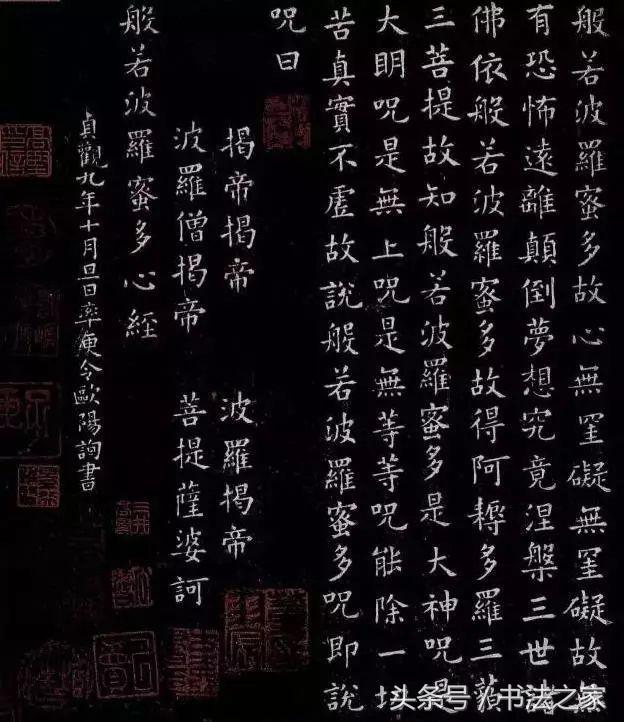 般若波羅蜜多故心無罣礙無罣礙故無
有恐怖遠離顛倒夢想究竟涅槃三世諸
佛依般若波羅蜜多故得阿耨多羅三藐
三菩提故知般若波羅蜜多是大神呪是
大明呪是無上呪是無等等呪能除一切
苦真實不虛故說般若波羅蜜多呪即說
呪曰
揭帝揭帝 波羅揭帝
波羅僧揭帝 菩提薩婆訶
般若波羅蜜多心經
貞觀九年十月旦日率更令歐陽詢書
头条号/书法之家